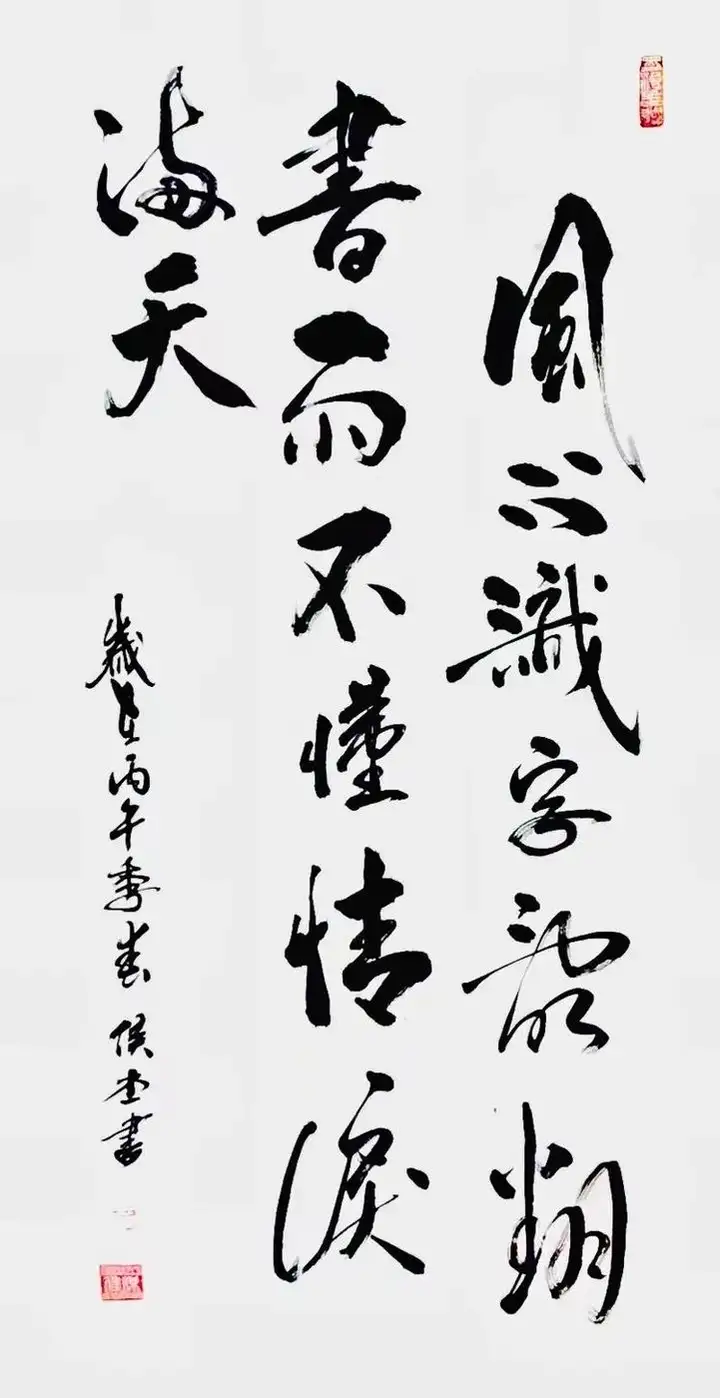 風不識字亂翻
書雨不懂情淚
滿天
歲在丙午季春 侯 書